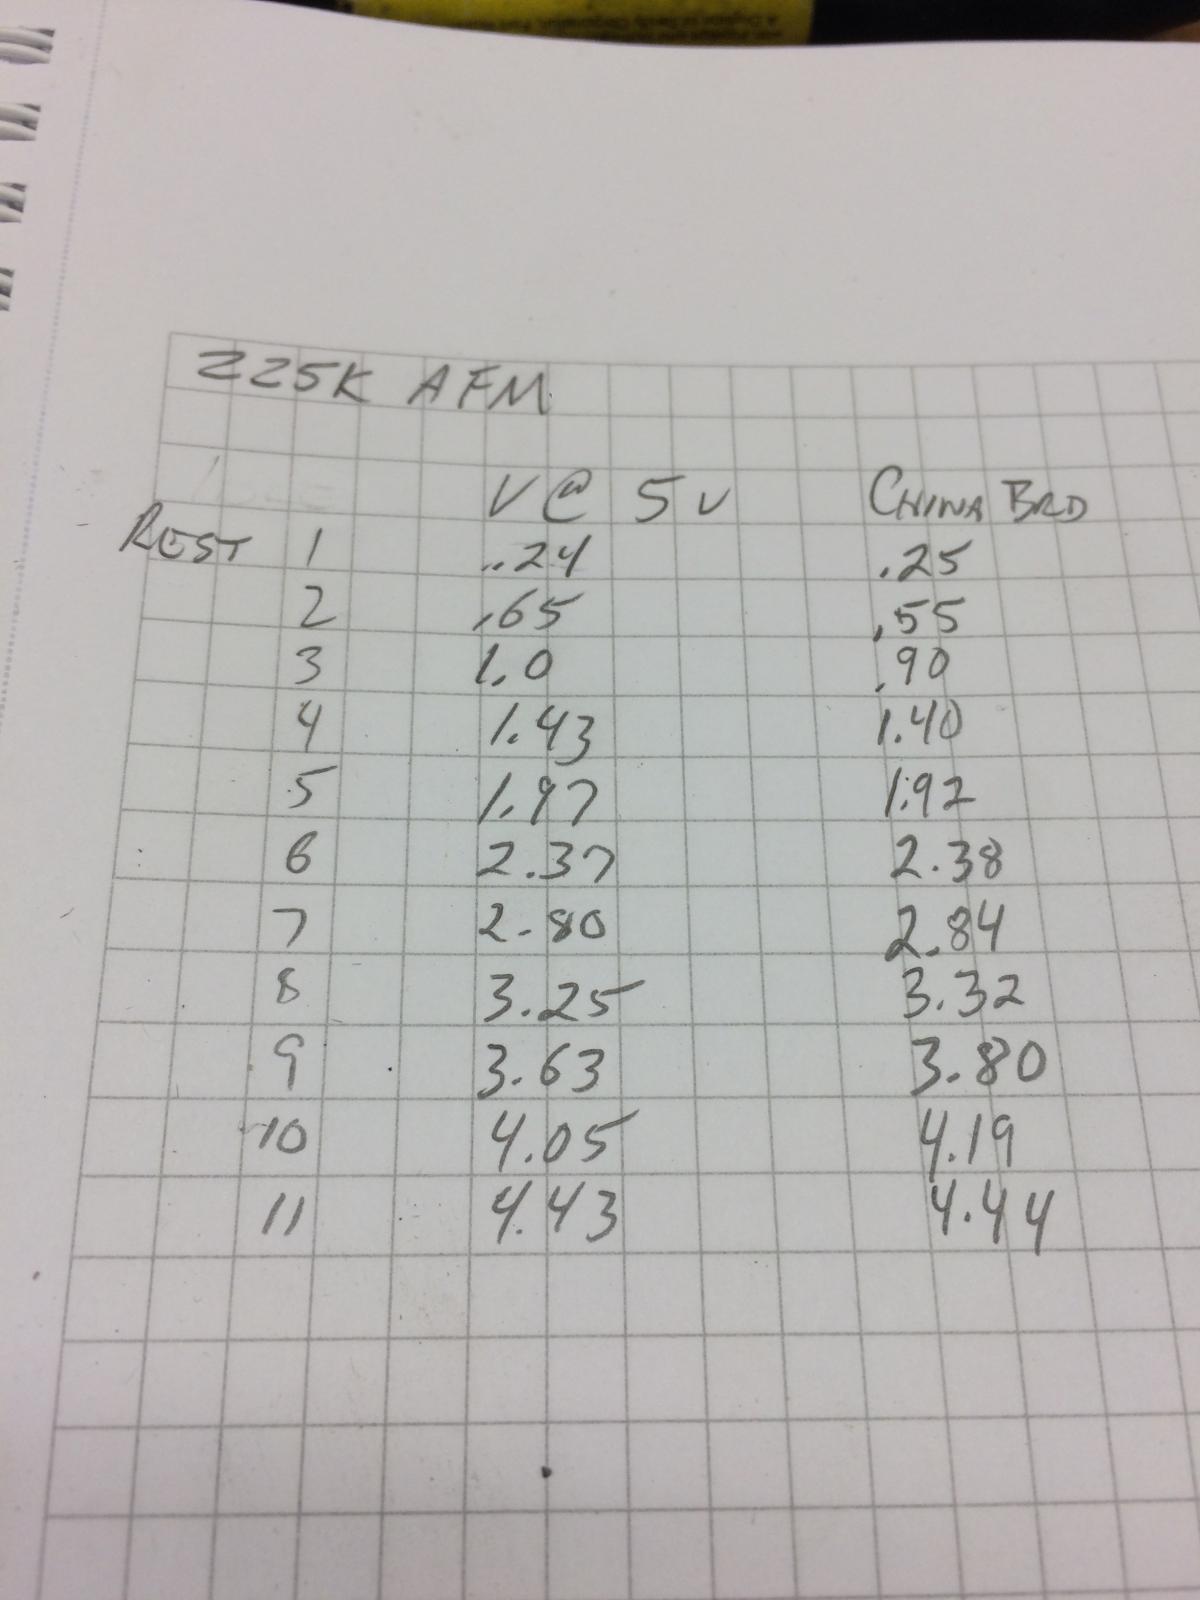 225K AFM
V@ 5V CHINA BRD
REST 1 .24 .25
2 .65 .55
3 1.0 .90
4 1.43 1.40
5 1.97 1.92
6 2.37 2.38
7 2.80 2.84
8 3.25 3.32
9 3.63 3.80
10 4.05 4.19
11 4.43 4.44